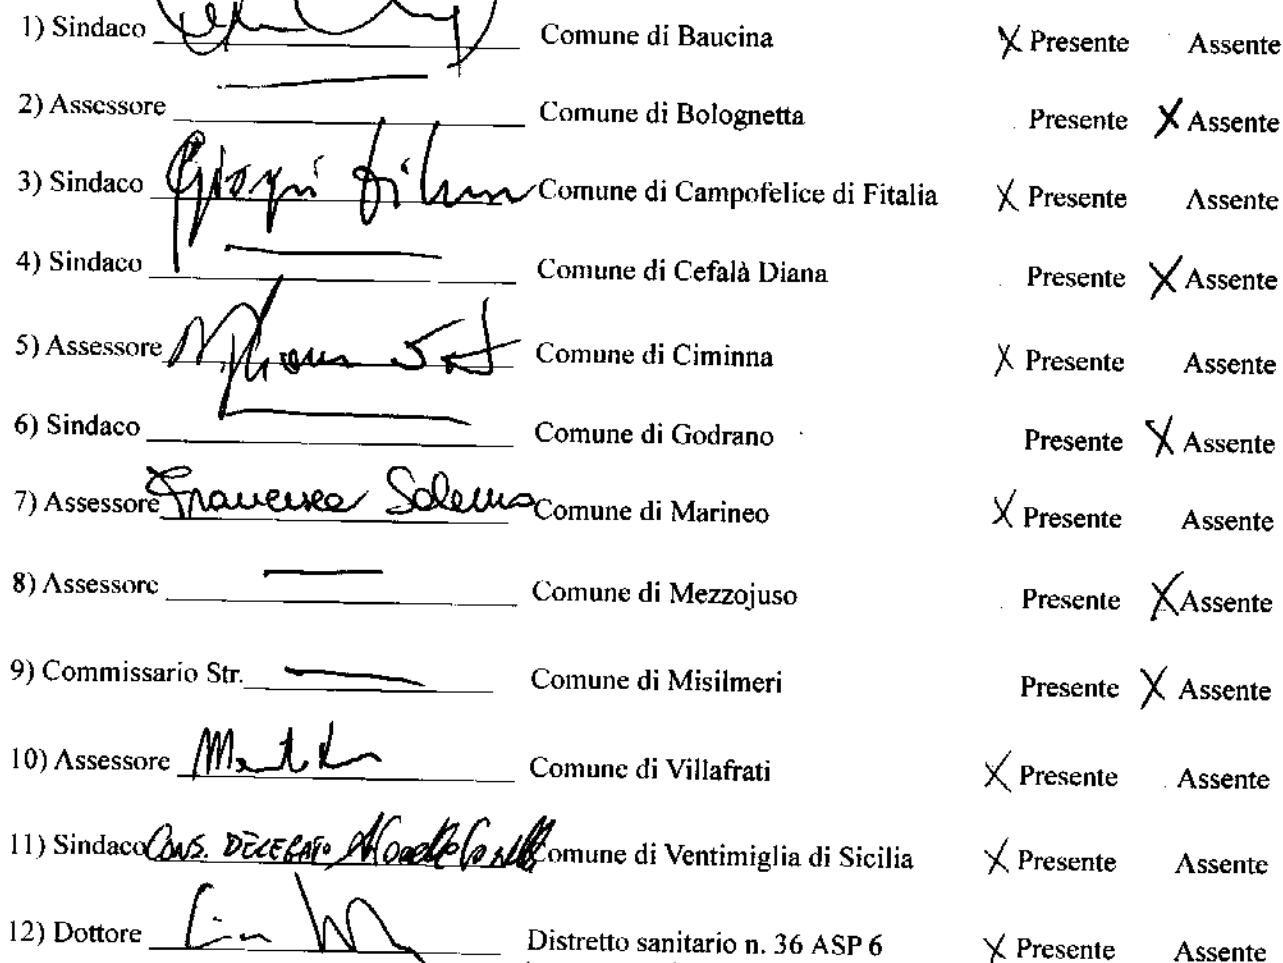 1) Sindaco Comune di Baucina X Presente Assente
2) Assessore Comune di Bolognetta Presente X Assente
3) Sindaco Comune di Campofelice di Fitalia X Presente Assente
4) Sindaco Comune di Cefalà Diana Presente X Assente
5) Assessore Comune di Ciminna X Presente Assente
6) Sindaco Comune di Godrano Presente X Assente
7) Assessore Francesca Salerno Comune di Marineo X Presente Assente
8) Assessore Comune di Mezzojuso Presente X Assente
9) Commissario Str. Comune di Misilmeri Presente X Assente
10) Assessore Comune di Villafrati X Presente Assente
11) Sindaco CONS. DELEGATO Comune di Ventimiglia di Sicilia X Presente Assente
12) Dottore Distretto sanitario n. 36 ASP 6 X Presente Assente